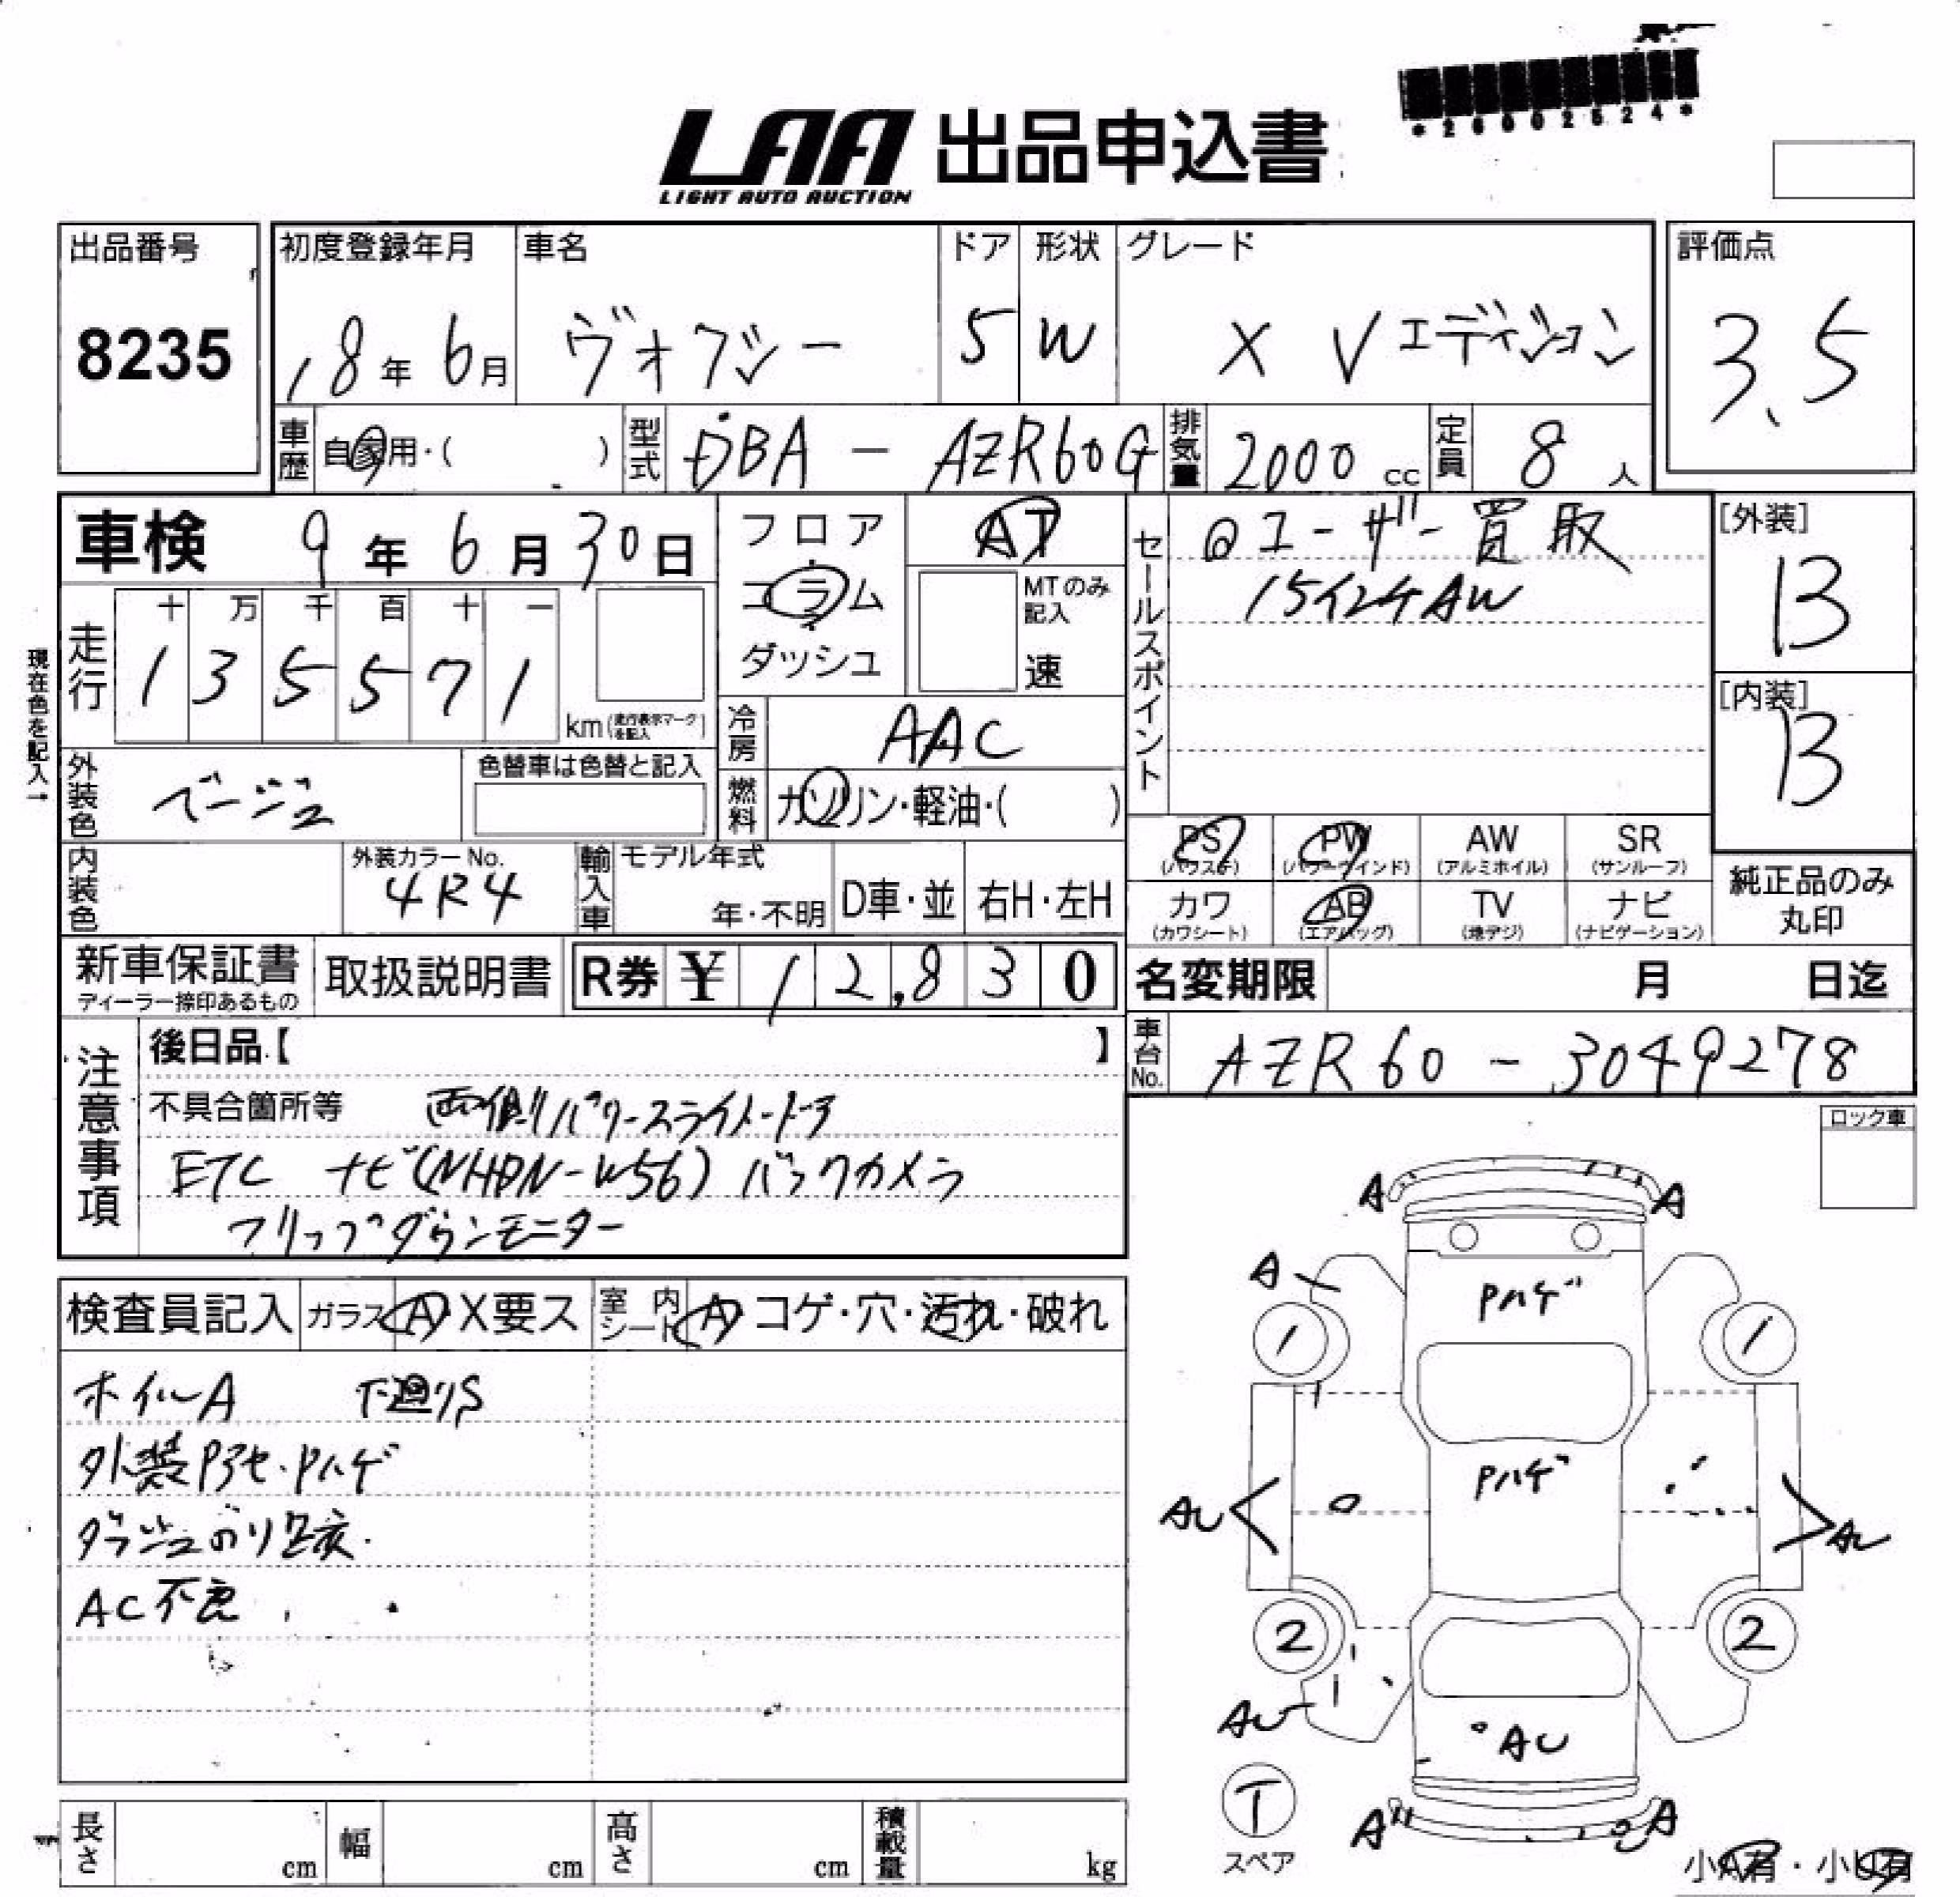 *26002524*
LAA 出品申込書
LIGHT AUTO AUCTION
出品番号
8235
初度登録年月
18年 6月
車名
ヴォクシー
ドア
5
形状
W
グレード
X Vエディション
評価点
3.5
車歴 自家用・( )
型式 DBA - AZR60G
排気量 2000 cc
定員 8 人
車検 9年 6月 30日
フロア
コラム
ダッシュ
AT
MTのみ記入
速
現在色を記入→
走行
十 万 千 百 十 一
1 3 5 5 7 1
km(走行表示マークを記入)
冷房 AAC
外装色 ベージュ
色替車は色替と記入
燃料 ガソリン・軽油・( )
内装色
外装カラーNo.
4R4
輸入車
モデル年式
年・不明
D車・並
右H・左H
セールスポイント
@ユーザー買取
15インチAW
[外装]
B
[内装]
B
PS (パワステ)
PW (パワーウインド)
AW (アルミホイル)
SR (サンルーフ)
カワ (カワシート)
AB (エアバッグ)
TV (地デジ)
ナビ (ナビゲーション)
純正品のみ
丸印
新車保証書
ディーラー捺印あるもの
取扱説明書
R券 ¥ 12,830
名変期限 月 日迄
車台No. AZR60-3049278
注意事項
後日品【 】
不具合箇所等 両側パワースライドドア
ETC ナビ(NHDN-W56) バックカメラ
フリップダウンモニター
ロック車
検査員記入
ガラス A・X要ス
室内シート A コゲ・穴・汚れ・破れ
ホイルA 下廻りS
外装Pアセ・Pハゲ
ダッシュのり跡
AC不良
A A
A
Pハゲ
1 1
Pハゲ
AU AU
2 2
AU
AU
T
スペア
A A
小A有・小U有
長さ cm
幅 cm
高さ cm
積載量 kg